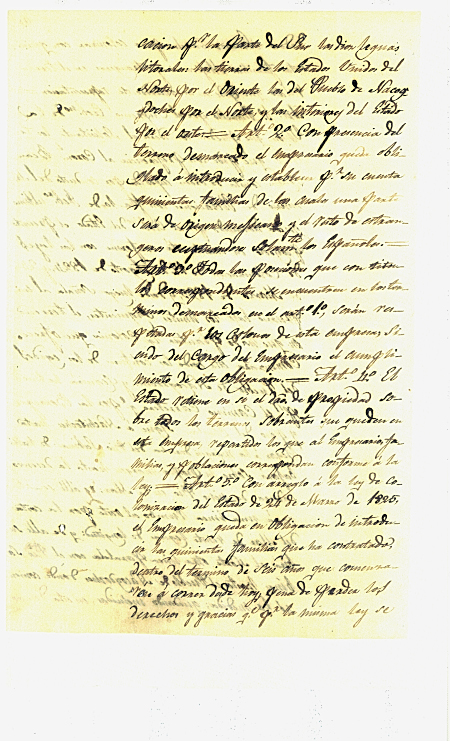 cacion p.r la parte del Sur las diez leguas
litorales las tierras de los Estados Unidos del
Norte, por el Oriente las del Pueblo de Nacog-
doches por el Norte, y las interiores del Estado
por el oeste = Art.o 2.o Con presencia del
terreno demarcado el Empresario queda obli-
gado á introducir y establecer p.r su cuenta
quinientas familias de las cuales una parte
será de origen mexicano y el resto de estran-
geros esceptuandose solam.te los Españoles. =
Art.o 3.o Todas las posesiones que con titu-
los correspondientes se encuentran en los ter-
minos demarcados en el art.o 1.o serán res-
petadas p.r los Colonos de esta empresa, si-
endo del cargo del Empresario el cumpli-
miento de esta obligacion. = Art.o 4.o El
Estado retiene en si el dro. de propiedad so-
bre todos los terrenos sobrantes que queden en
esta Empresa repartidos los que al Empresario, fa-
milias, y poblaciones correspondan conforme á la
ley. = Art.o 5.o Con arreglo á la ley de co-
lonizacion del Estado de 24 de Marzo de 1825,
el Empresario queda en obligacion de introdu-
cir las quinientas familias que ha contratado,
dentro del termino de seis años que comenza-
rán á correr desde hoy, pena de perder los
derechos y gracias q.e p.r la misma ley se